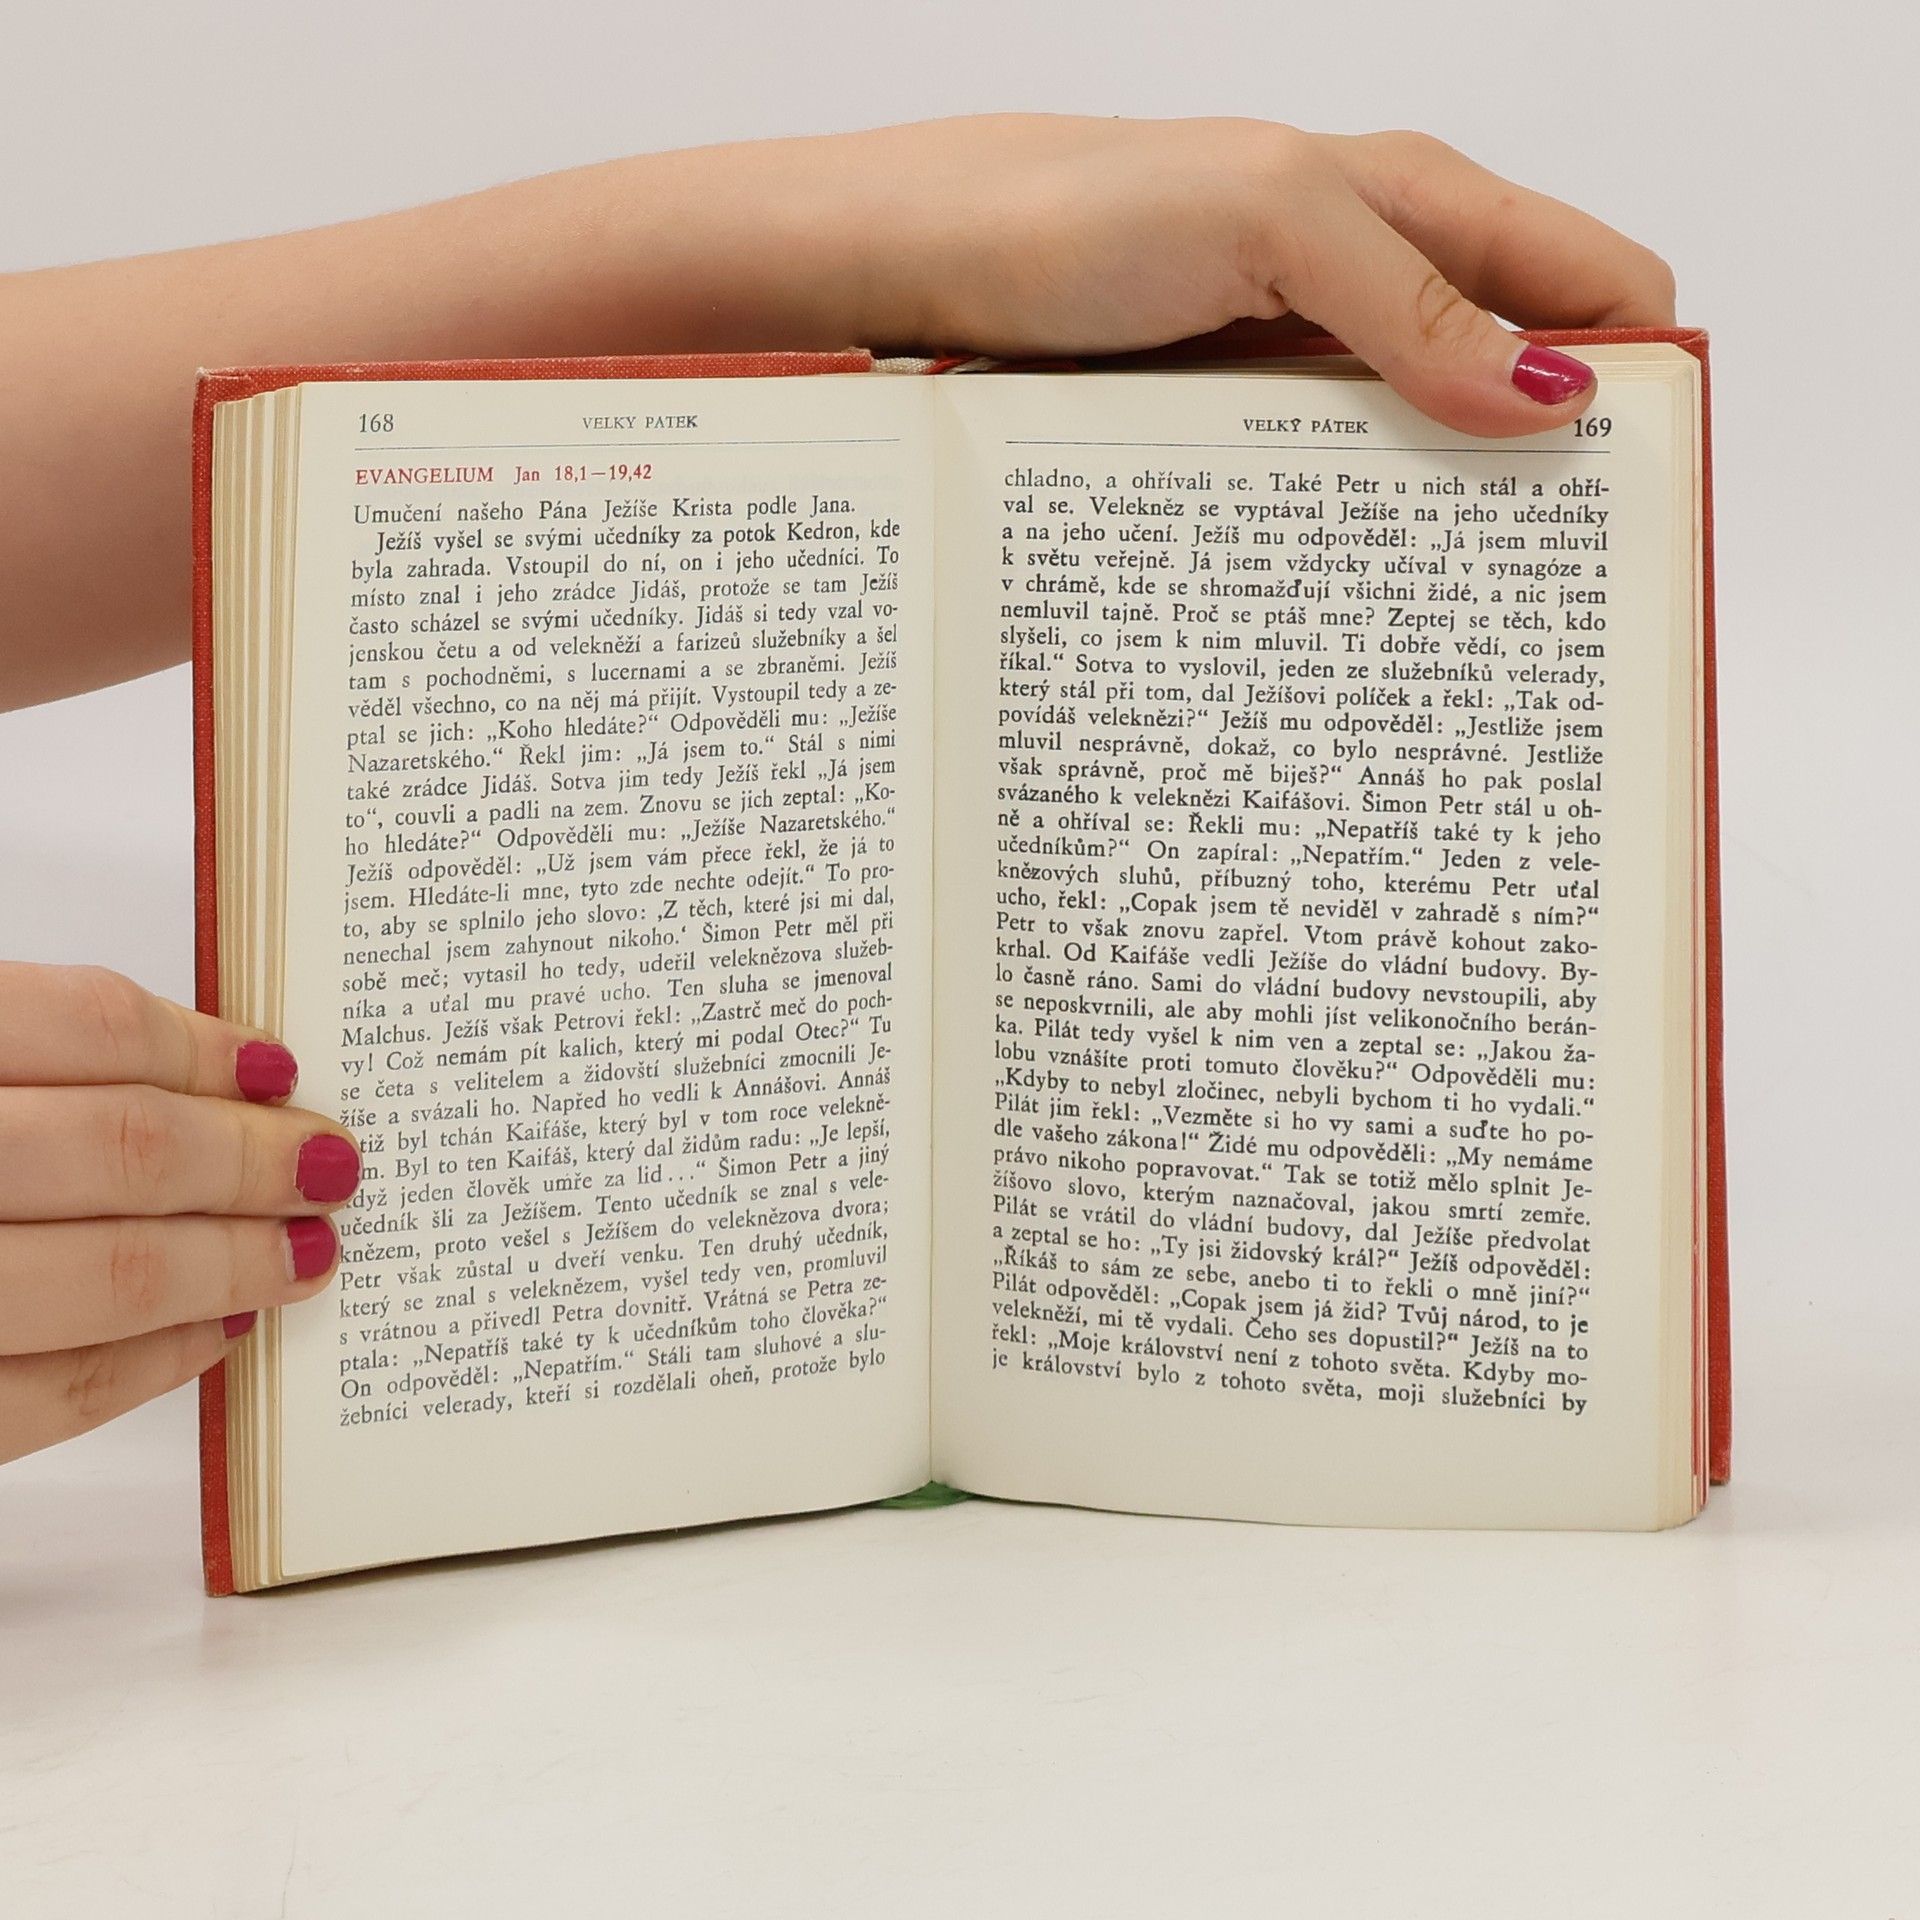 168
VELKÝ PÁTEK
EVANGELIUM Jan 18,1—19,42
Umučení našeho Pána Ježíše Krista podle Jana.
Ježíš vyšel se svými učedníky za potok Kedron, kde
byla zahrada. Vstoupil do ní, on i jeho učedníci. To
místo znal i jeho zrádce Jidáš, protože se tam Ježíš
často scházel se svými učedníky. Jidáš si tedy vzal vo-
jenskou četu a od velekněží a farizeů služebníky a šel
tam s pochodněmi, s lucernami a se zbraněmi. Ježíš
věděl všechno, co na něj má přijít. Vystoupil tedy a ze-
ptal se jich: „Koho hledáte?“ Odpověděli mu: „Ježíše
Nazaretského.“ Řekl jim: „Já jsem to.“ Stál s nimi
také zrádce Jidáš. Sotva jim tedy Ježíš řekl „Já jsem
to“, couvli a padli na zem. Znovu se jich zeptal: „Ko-
ho hledáte?“ Odpověděli mu: „Ježíše Nazaretského.“
Ježíš odpověděl: „Už jsem vám přece řekl, že já to
jsem. Hledáte-li mne, tyto zde nechte odejít.“ To pro-
to, aby se splnilo jeho slovo: ‚Z těch, které jsi mi dal,
nenechal jsem zahynout nikoho.‘ Šimon Petr měl při
sobě meč; vytasil ho tedy, udeřil veleknězova služeb-
níka a uťal mu pravé ucho. Ten sluha se jmenoval
Malchus. Ježíš však Petrovi řekl: „Zastrč meč do poch-
vy! Což nemám pít kalich, který mi podal Otec?“ Tu
se četa s velitelem a židovští služebníci zmocnili Je-
žíše a svázali ho. Napřed ho vedli k Annášovi. Annáš
tiž byl tchán Kaifáše, který byl v tom roce velekně-
m. Byl to ten Kaifáš, který dal židům radu: „Je lepší,
když jeden člověk umře za lid...“ Šimon Petr a jiný
učedník šli za Ježíšem. Tento učedník se znal s vele-
knězem, proto vešel s Ježíšem do veleknězova dvora;
Petr však zůstal u dveří venku. Ten druhý učedník,
který se znal s veleknězem, vyšel tedy ven, promluvil
s vrátnou a přivedl Petra dovnitř. Vrátná se Petra ze-
ptala: „Nepatříš také ty k učedníkům toho člověka?“
On odpověděl: „Nepatřím.“ Stáli tam sluhové a slu-
žebníci velerady, kteří si rozdělali oheň, protože bylo
VELKÝ PÁTEK
169
chladno, a ohřívali se. Také Petr u nich stál a ohří-
val se. Velekněz se vyptával Ježíše na jeho učedníky
a na jeho učení. Ježíš mu odpověděl: „Já jsem mluvil
k světu veřejně. Já jsem vždycky učíval v synagóze a
v chrámě, kde se shromažďují všichni židé, a nic jsem
nemluvil tajně. Proč se ptáš mne? Zeptej se těch, kdo
slyšeli, co jsem k nim mluvil. Ti dobře vědí, co jsem
říkal.“ Sotva to vyslovil, jeden ze služebníků velerady,
který stál při tom, dal Ježíšovi políček a řekl: „Tak od-
povídáš veleknězi?“ Ježíš mu odpověděl: „Jestliže jsem
mluvil nesprávně, dokaž, co bylo nesprávné. Jestliže
však správně, proč mě biješ?“ Annáš ho pak poslal
svázaného k veleknězi Kaifášovi. Šimon Petr stál u oh-
ně a ohříval se: Řekli mu: „Nepatříš také ty k jeho
učedníkům?“ On zapíral: „Nepatřím.“ Jeden z vele-
knězových sluhů, příbuzný toho, kterému Petr uťal
ucho, řekl: „Copak jsem tě neviděl v zahradě s ním?“
Petr to však znovu zapřel. Vtom právě kohout zako-
krhal. Od Kaifáše vedli Ježíše do vládní budovy. By-
lo časně ráno. Sami do vládní budovy nevstoupili, aby
se neposkvrnili, ale aby mohli jíst velikonočního berán-
ka. Pilát tedy vyšel k nim ven a zeptal se: „Jakou ža-
lobu vznášíte proti tomuto člověku?“ Odpověděli mu:
„Kdyby to nebyl zločinec, nebyli bychom ti ho vydali.“
Pilát jim řekl: „Vezměte si ho vy sami a suďte ho po-
dle vašeho zákona!“ Židé mu odpověděli: „My nemáme
právo nikoho popravovat.“ Tak se totiž mělo splnit Je-
žíšovo slovo, kterým naznačoval, jakou smrtí zemře.
Pilát se vrátil do vládní budovy, dal Ježíše předvolat
a zeptal se ho: „Ty jsi židovský král?“ Ježíš odpověděl:
„Říkáš to sám ze sebe, anebo ti to řekli o mně jiní?“
Pilát odpověděl: „Copak jsem já žid? Tvůj národ, to je
velekněží, mi tě vydali. Čeho ses dopustil?“ Ježíš na to
řekl: „Moje království není z tohoto světa. Kdyby mo-
je království bylo z tohoto světa, moji služebníci by